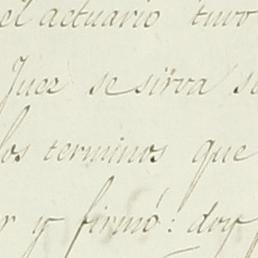 el actuario tuvo
Juez se sirva
los terminos que
y firmó: doy